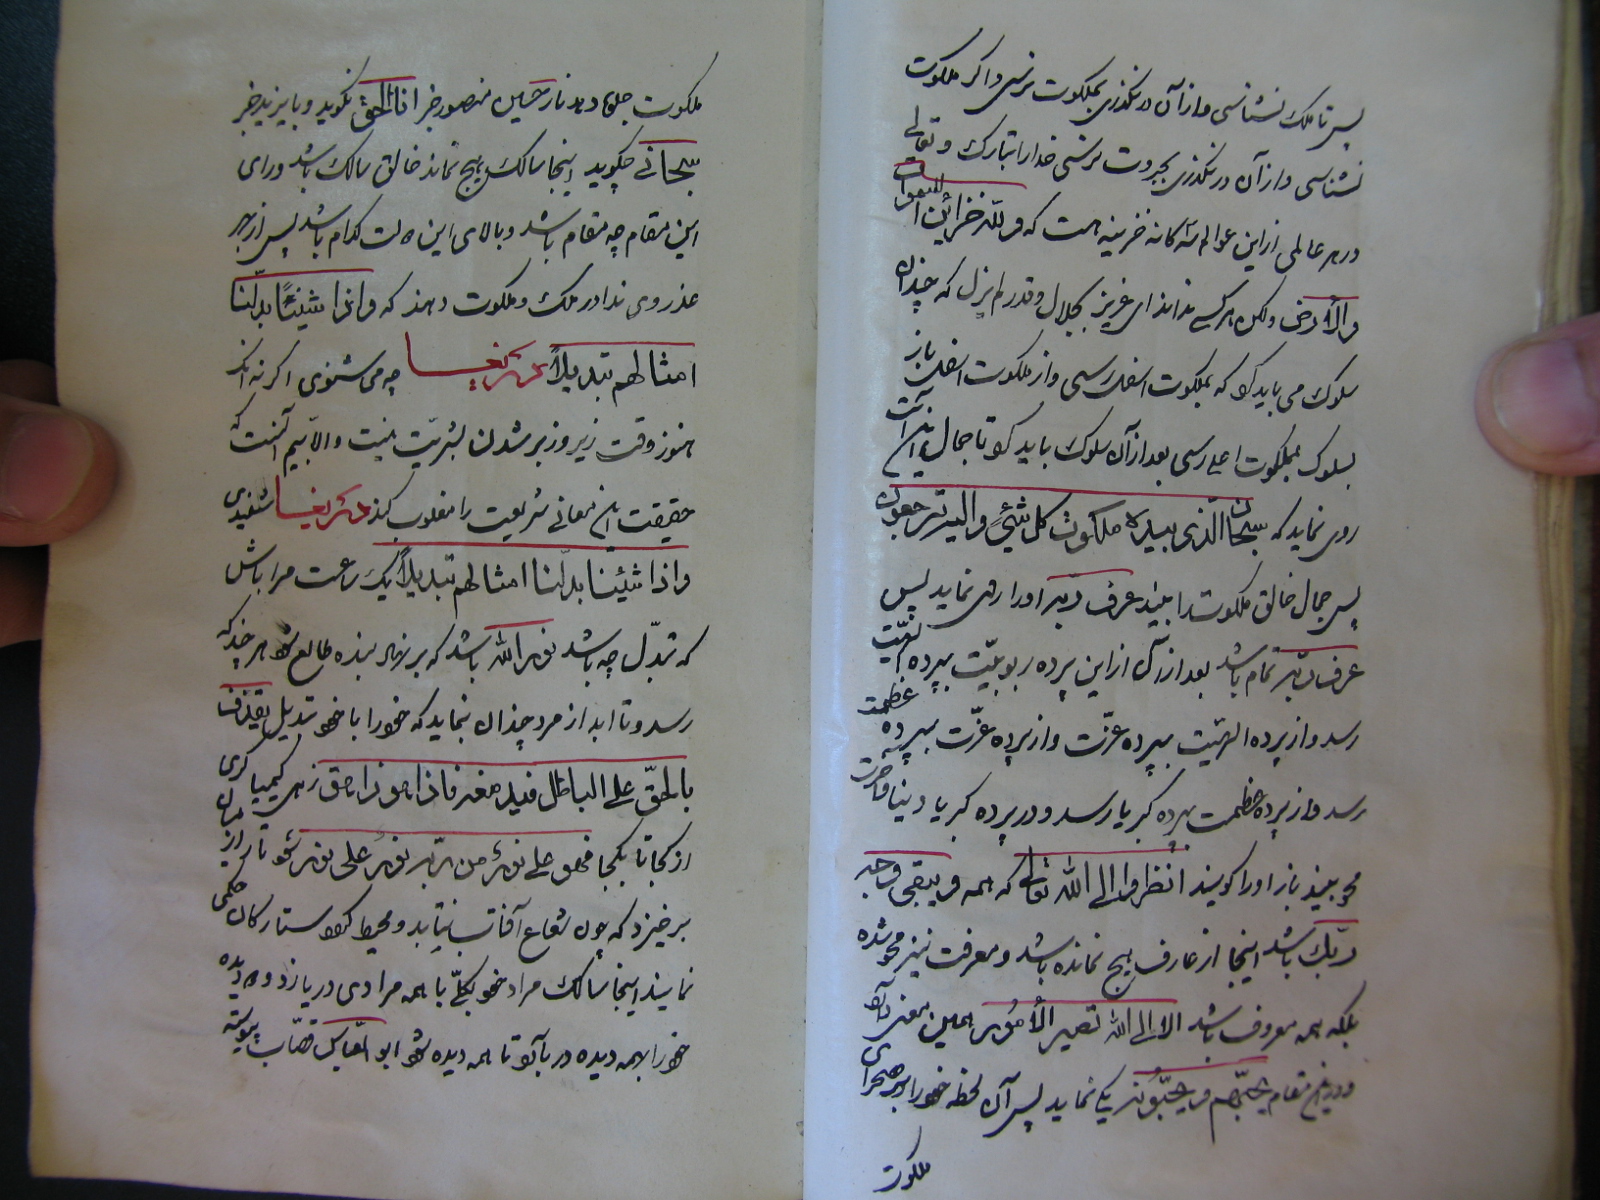 پس تا ملک نشناسی و از آن درنگذری بملکوت نرسی و اگر ملکوت
نشناسی و از آن درنگذری بجبروت نرسی خدایرا تبارک و تعالی
در هر عالمی از این عوالم سه گانه خزینه هست که و لله خزائن السموات
والأرض ولکن هر کسی نداند ای عزیز بجلال و قدر لم یزل که چندان
سلوک می باید کرد که بملکوت اسفل رسی و از ملکوت اسفل باز
بسلوک بملکوت اعلی رسی بعد از آن سلوک باید کرد تا جمال این آیت
روی نماید که سبحان الذی بیده ملکوت کل شئ والیه ترجعون
پس جمال خالق ملکوت را ببیند عرف ربه او را روی نماید پس
عرف ربه تمام باشد بعد از آن از این پرده ربوبیّت بپرده الهیّت
رسد و از پرده الهیّت بپرده عزّت و از پرده عزّت بپرده عظمت
رسد و از پرده عظمت بپرده کبریا رسد و در پرده کبریا دنیا و آخرت
محو بیند باز او را گویند انظروا الی الله تعالی که همه و یبقی وجه
ربک باشد اینجا از عارف هیچ نمانده باشد و معرفت نیز محو شده
بلکه همه معروف باشد الا الی الله تصیر الأمور همین معنی دارد
و در این مقام یحبّهم و یحبّونه یکی نماید پس آن لحظه خود را بر صحرای
ملکوت
ملکوت جلوه دهد ناز حسین منصور جز انا الحق نگوید و بایزید جز
سبحانی چگوید اینجا سالک هیچ نماند خالق سالک باشد ورای
این مقام چه مقام باشد و بالای این دولت کدام باشد پس از هر
عذر وی ندا در ملک و ملکوت دهند که و اذا شئنا بدّلنا
امثالهم تبدیلاً چه می شنوی اگر نه آنکه
هنوز وقت زیر و زبر شدن بشریّت نیست و الا بیم آنست که
حقیقت این معانی شریعت را مغلوب کند شنیدی
و اذا شئنا بدلنا امثالهم تبدیلاً یک ساعت مرا باش
که تبدّل چه باشد نور الله باشد که بر نهاد بنده طالع شود هر چند که
رسد و تا ابد از مرد چندان بنماید که خود را با خود تبدیل یقذف
بالحقّ علی الباطل فیدمغه فاذا هو زاهق زهی کیمیاگری
از کجا تا بکجا فهو علی نور من ربه نور علی نور شود تا راز از میان
برخیزد که چون شعاع آفتاب بتابد و محیط کواکب و ستارگان حکمی
نمایند اینجا سالک مراد خود بکلّی با همه مرادی دربازد و دیده
خود را بهمه دیده دربازد تا همه دیده شود ابو العباس قصّاب پیوسته